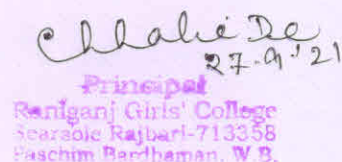 Chhabi De
27.9.'21
Principal
Raniganj Girls' College
Searsole Rajbari-713358
Paschim Bardhaman, W.B.